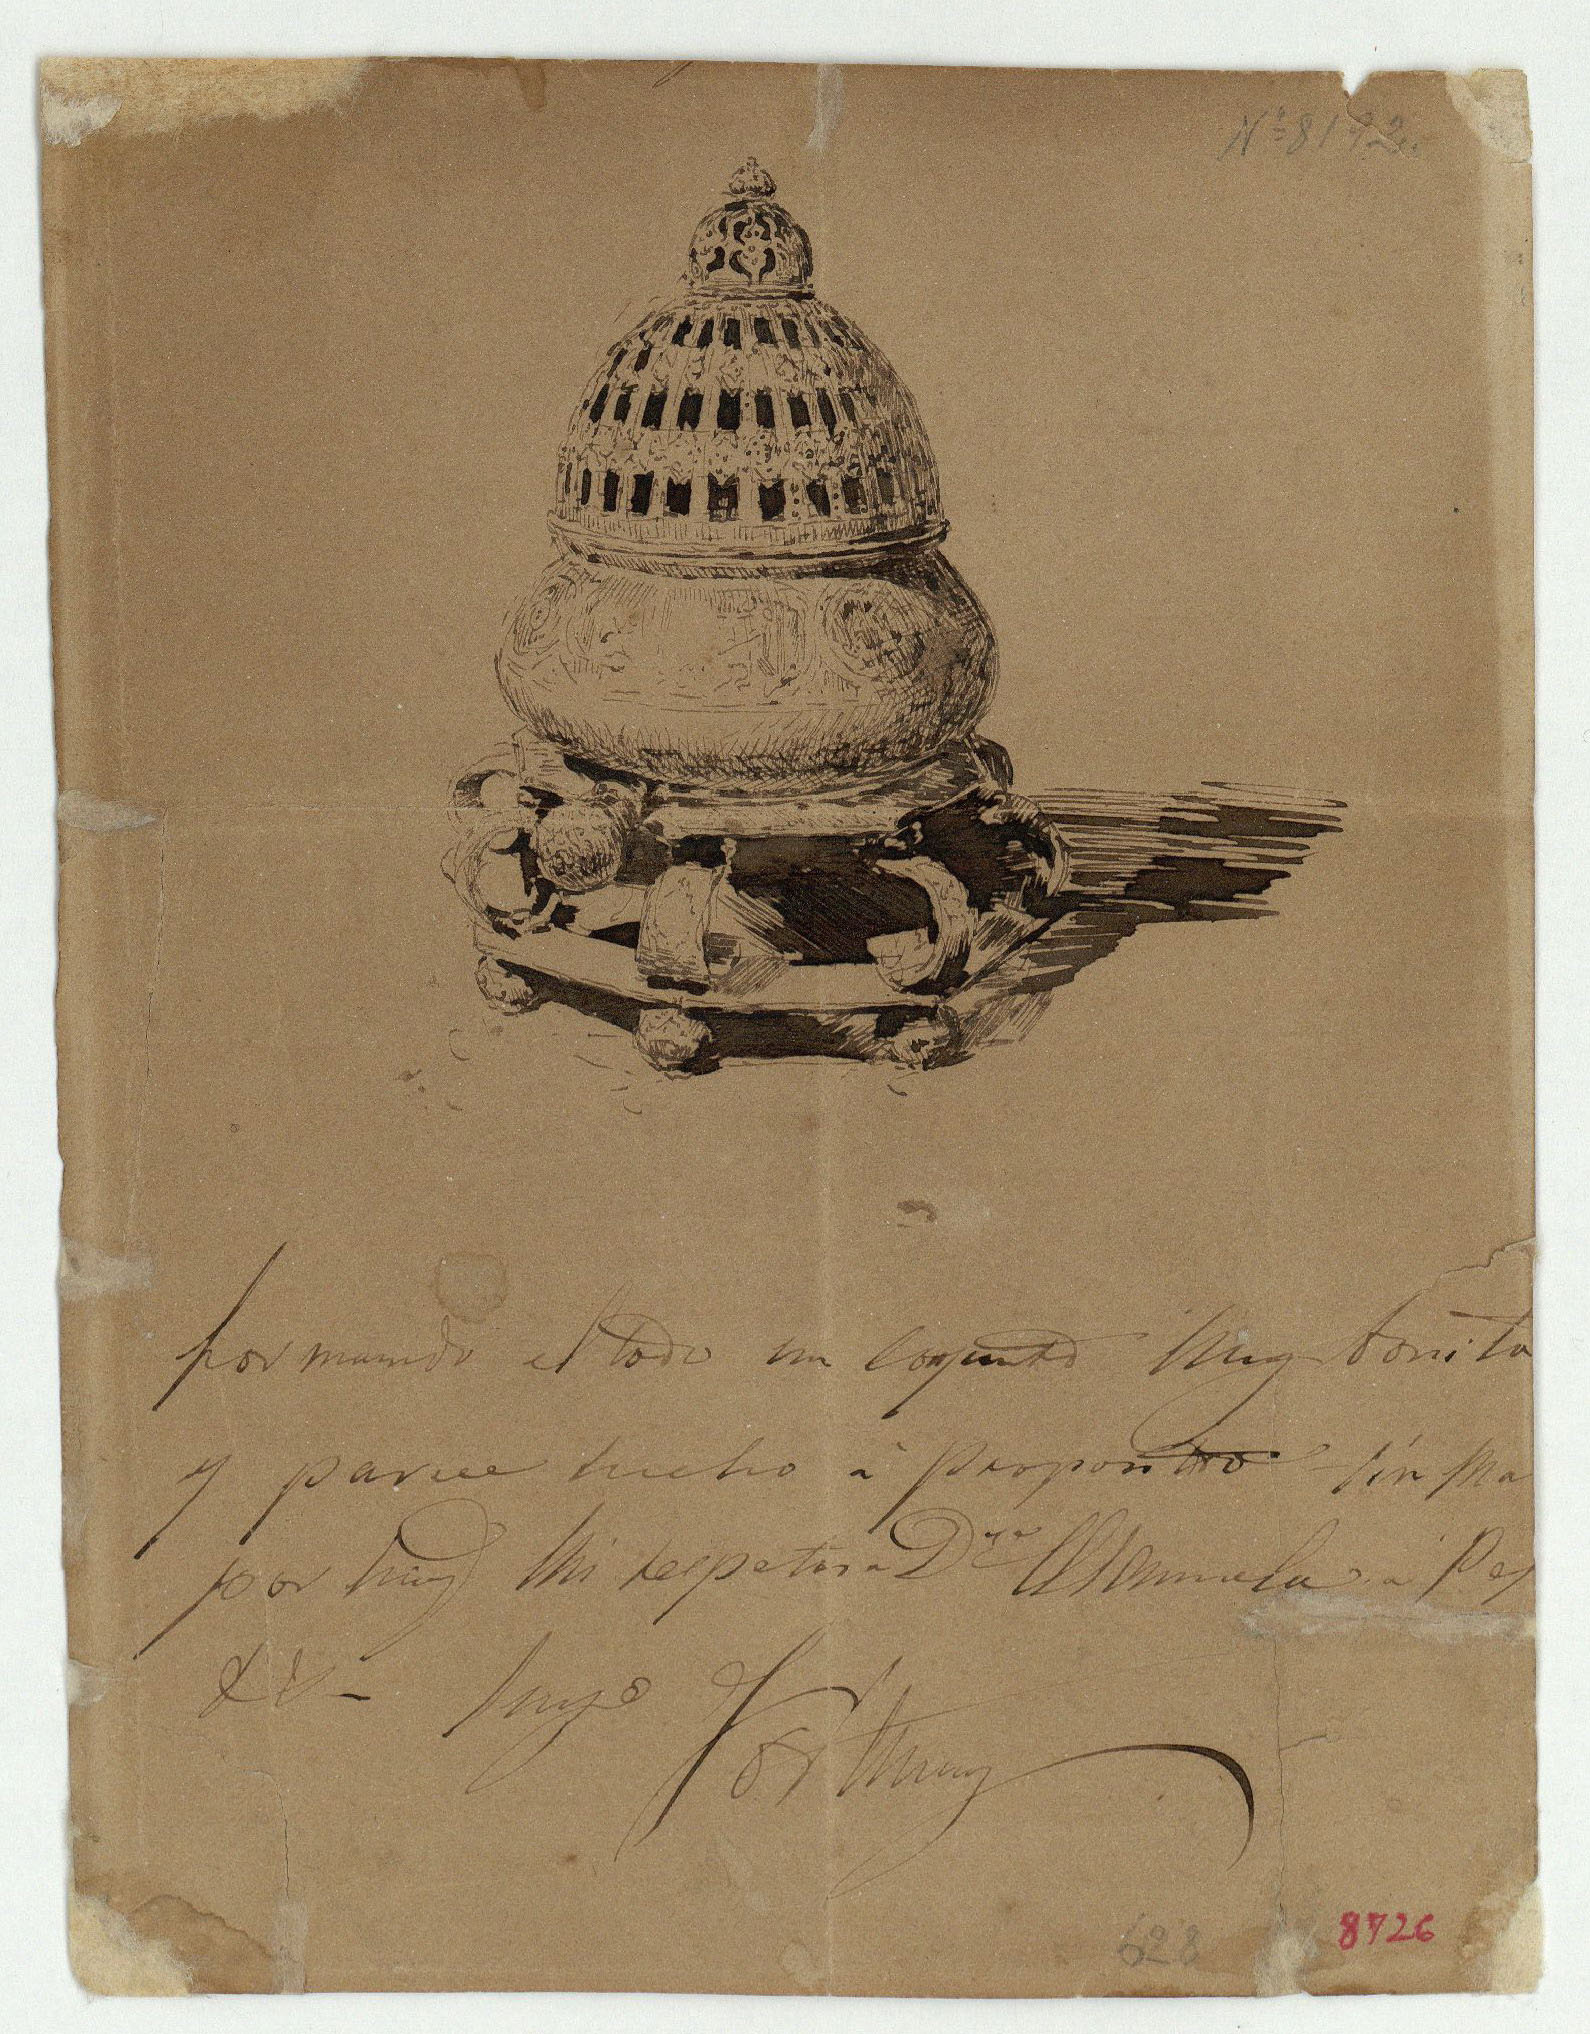 Nº 8142.
formando el todo un conjunto muy bonito
y parece hecho á proposito sin ma
por hoy mis respetos a Dña Manuela á Pep
&& suyo Fortuny
628
8726